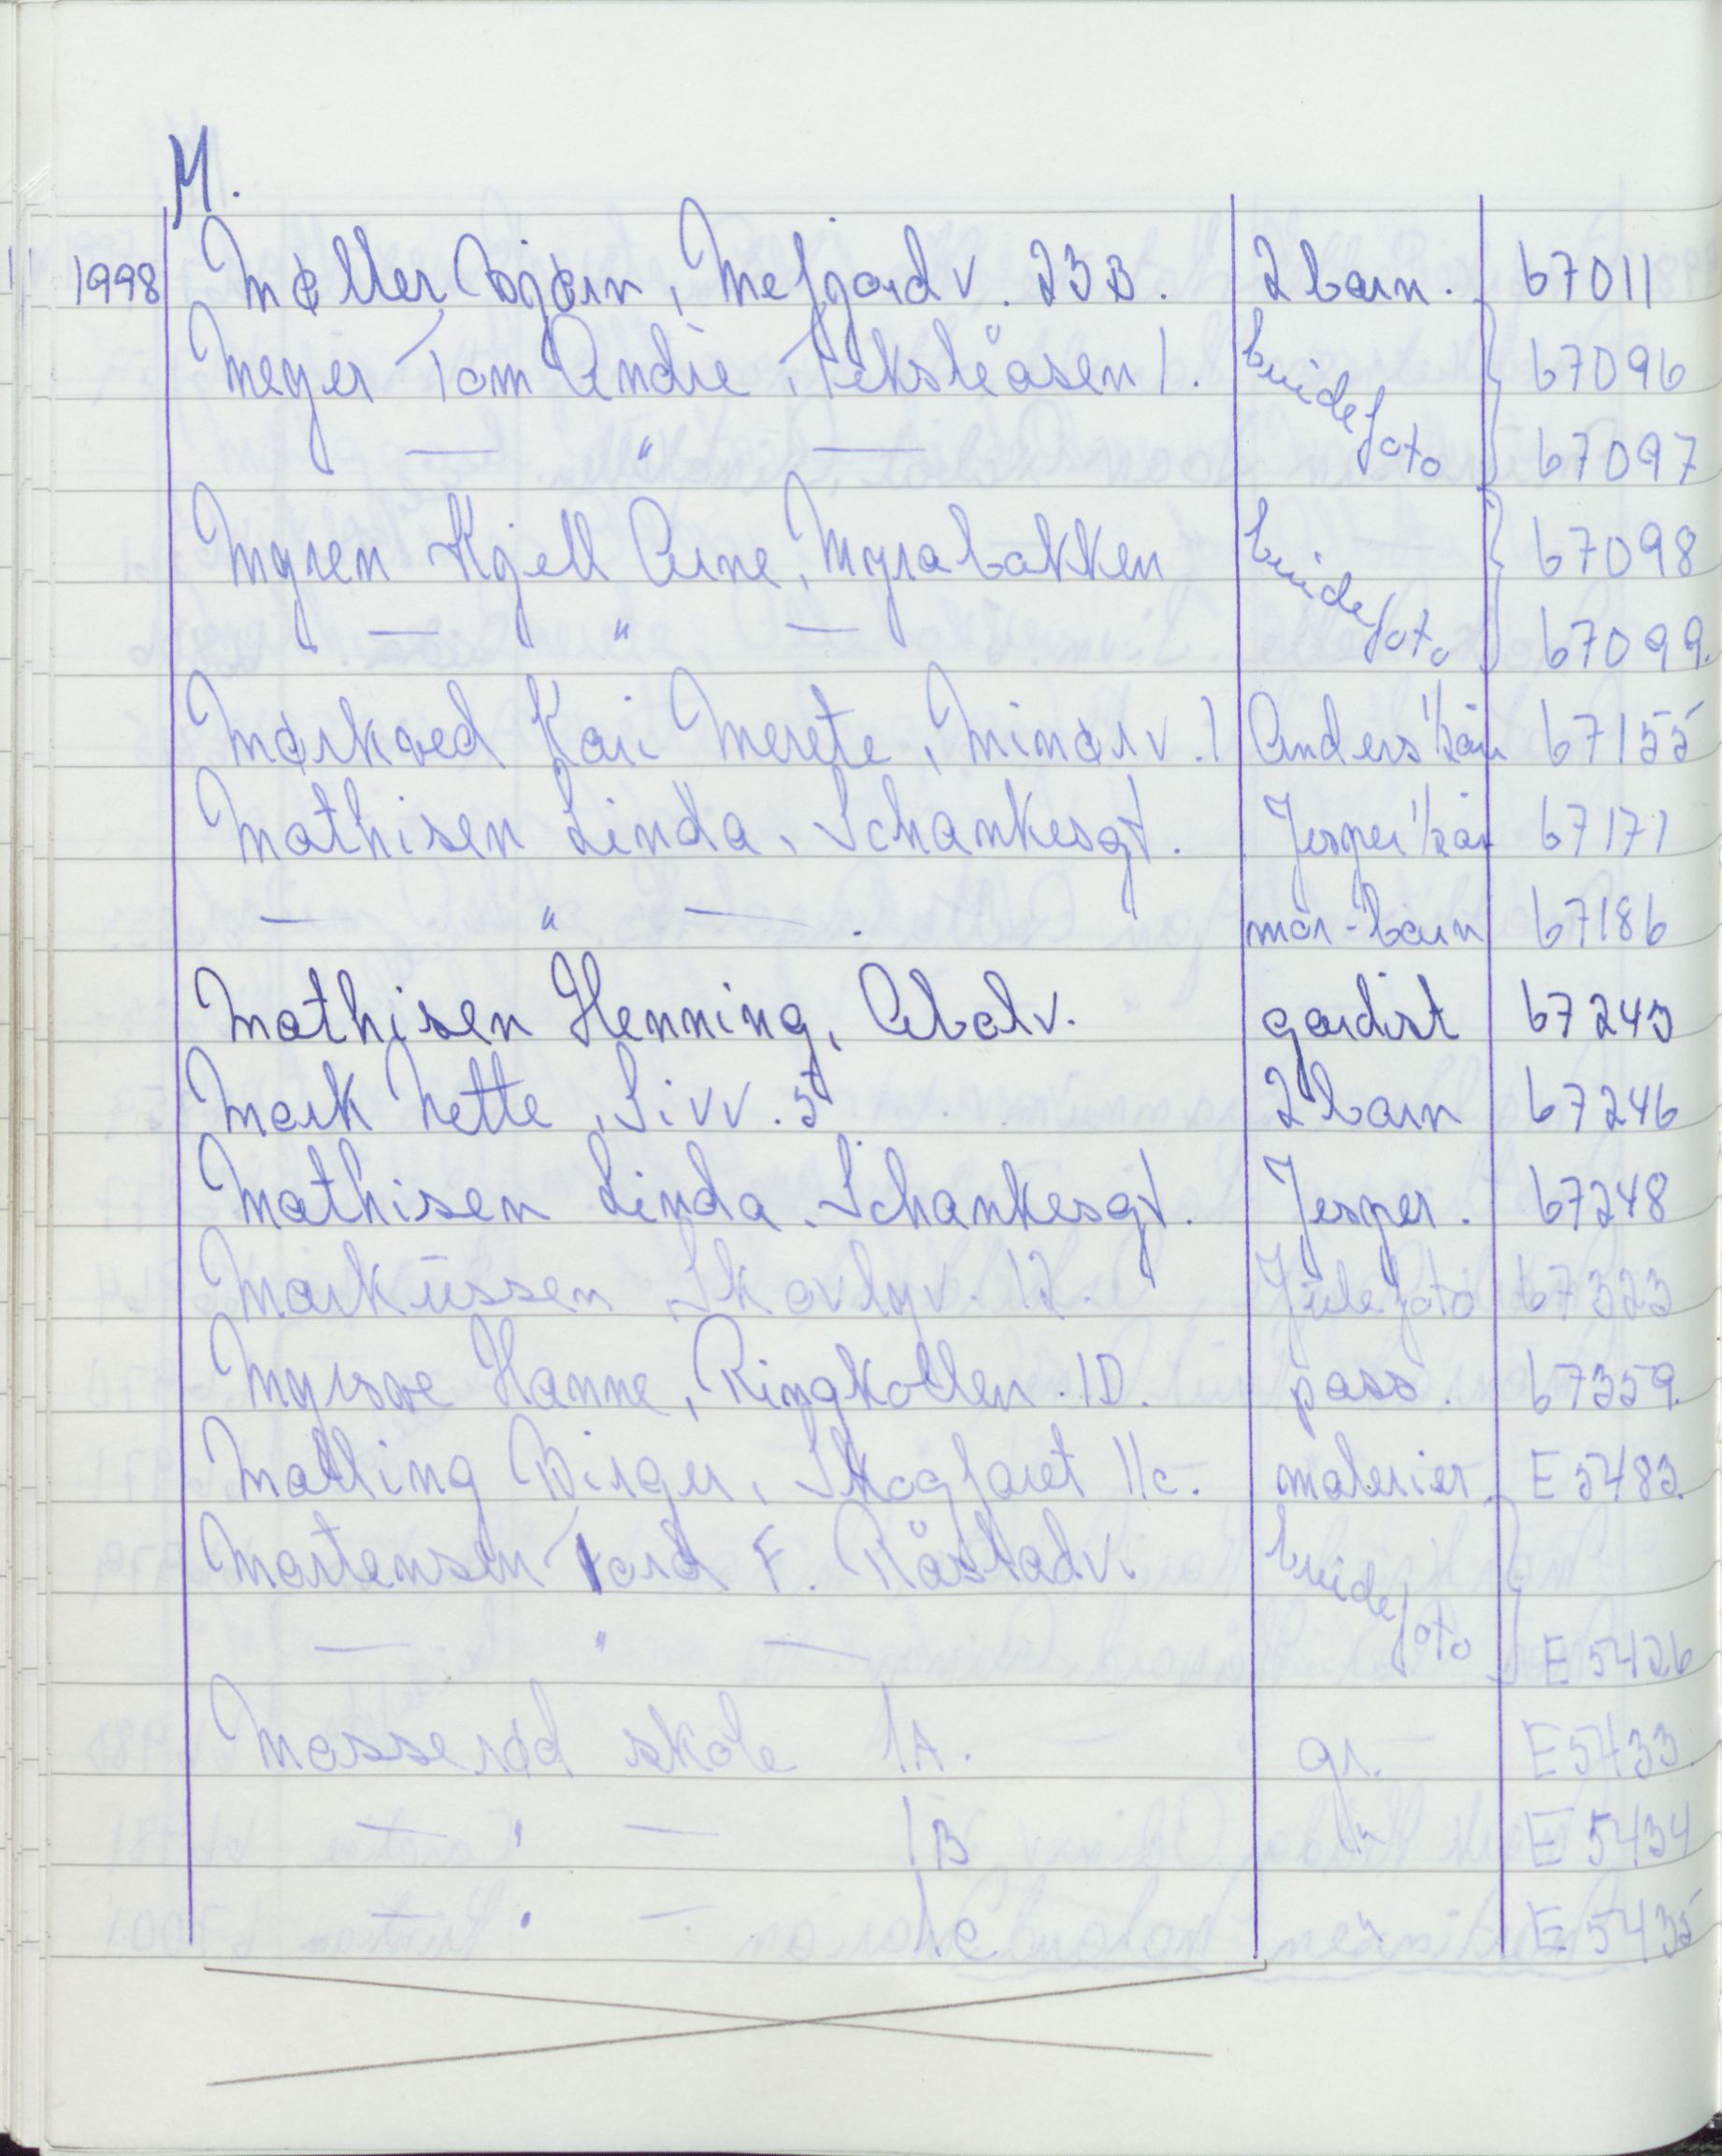 M.
1998 Møller Bjørn, Mefjordv. 23B. 2 barn. 67011
Meyer Tom Andre, Teksleåsen 1. brudefoto 67096
— " — 67097
Myren Kjell Arne, Myrabakken brudefoto 67098
— " — 67099.
Mørkved Kari Merete, Mimorv. 1 Anders 1/2 år 67155
Mathisen Linda, Schankesgt. Jesper 1/2 år 67171
— " — . mor-barn 67186
Mathisen Henning, gardist 67245
Mørk Mette, Sivv. 5 2 barn 67246
Mathisen Linda. Schankesgt. Jesper. 67248
Markussen Skovlyv. 12. Julefoto 67323
Myrsve Hanne, Ringkollen. 1D. pass. 67359.
Malling Birger, Skogfaret 11c. malerier. E 5483.
Mortensen Tord F. Råstadv. brudefoto
— " — E 5426
Mosserød skole 1A. gr. E 5433.
— " — 1B " E 5434
— " — 1c " E 5435